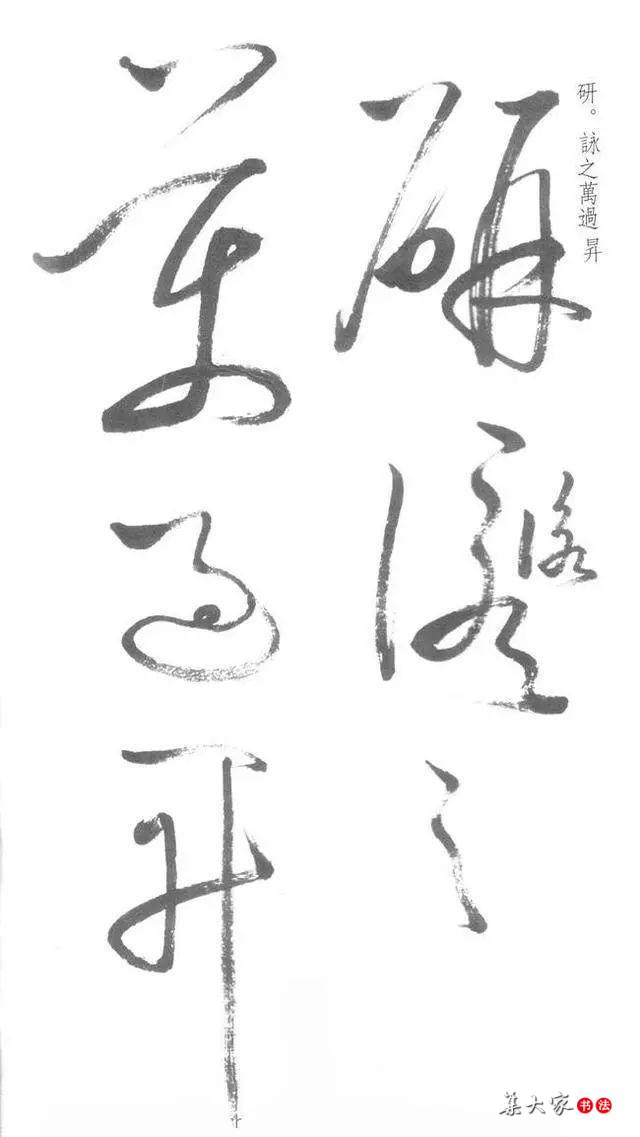 研。詠之萬過 昇
研詠之
萬過昇
集大家 书法